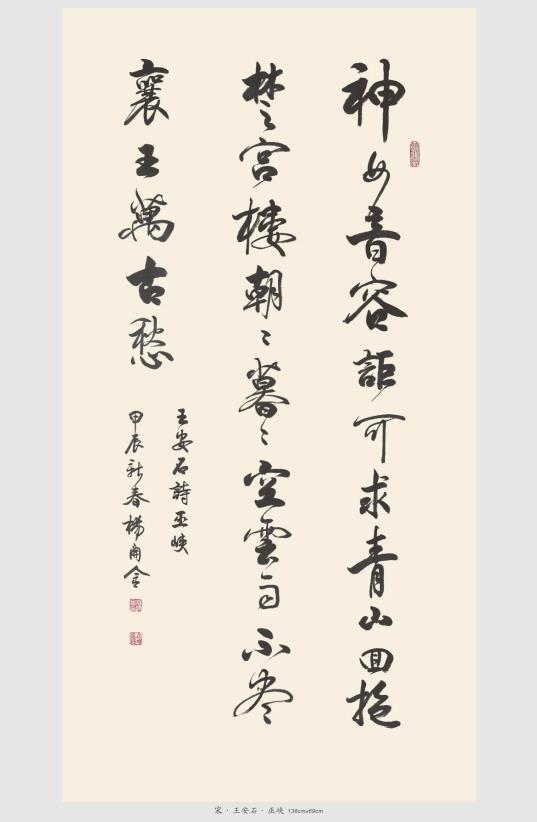 神女音容詎可求青山囬抱
楚宫楼朝〻暮〻空雲雨不尽
襄王萬古愁
王安石詩巫峡
甲辰新春楊金
宋·王安石·巫峡 138cmx69cm